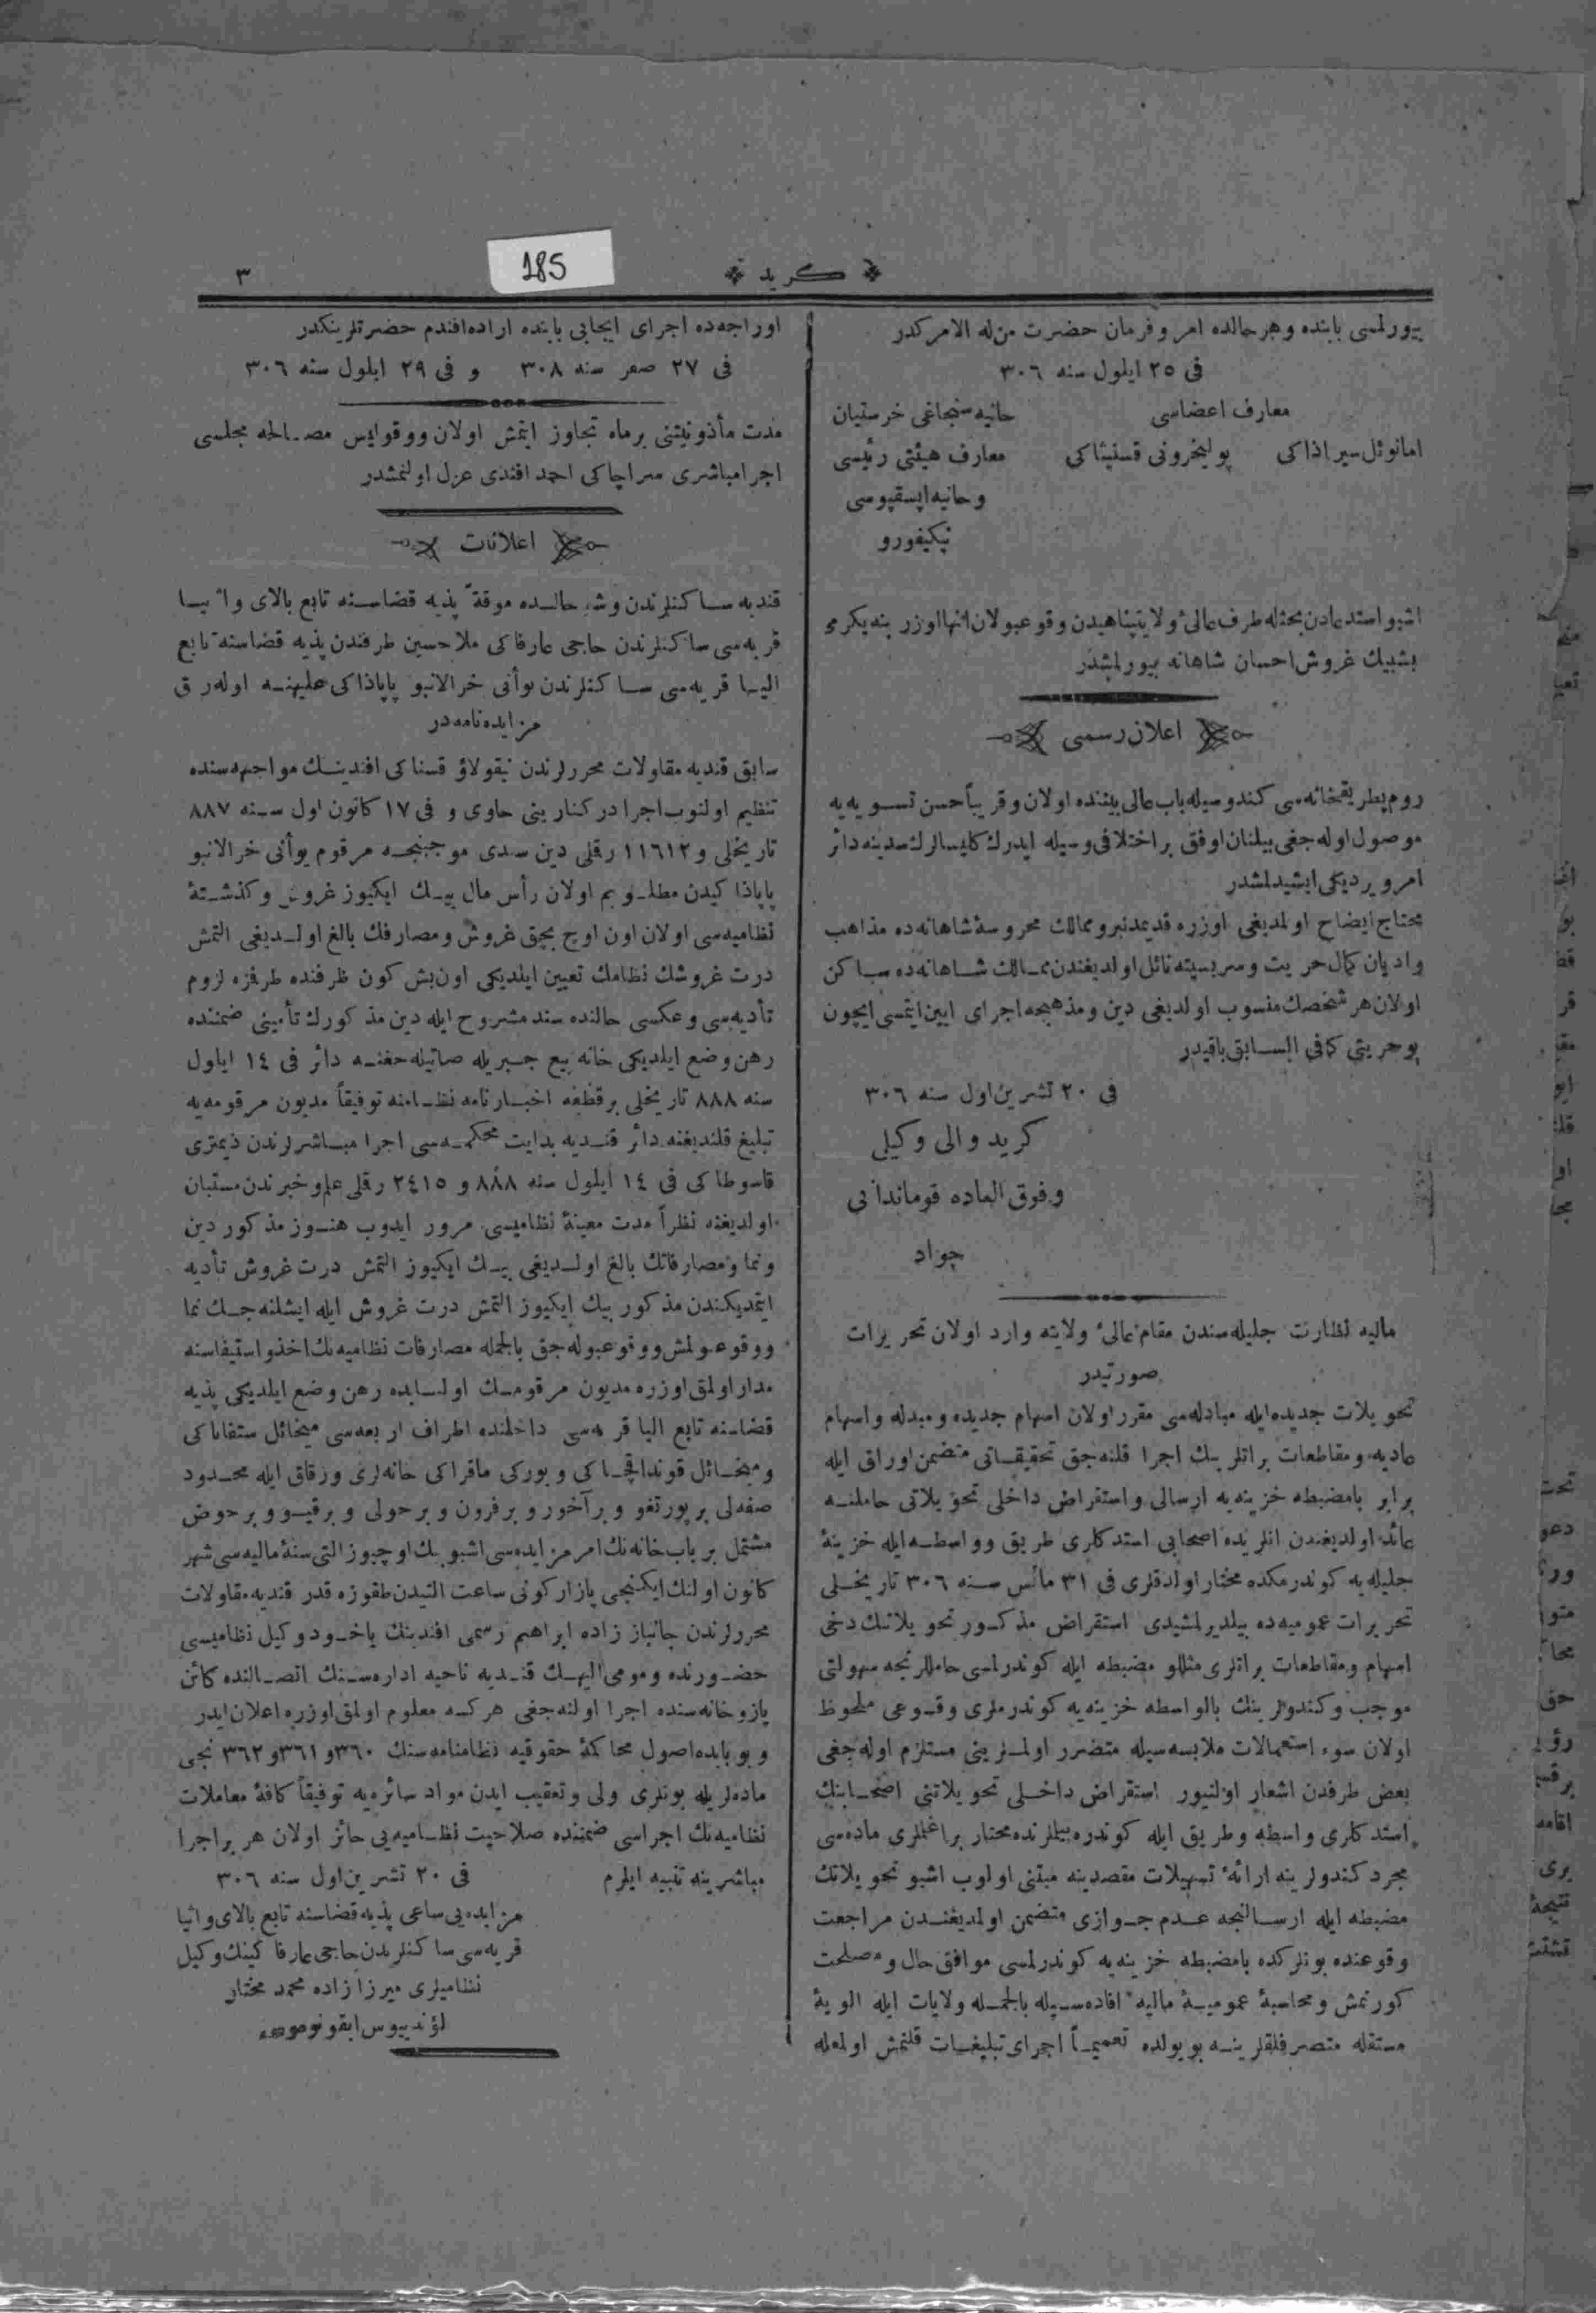 ❖ كريد ❖
185
٣
بيورلمسى بابنده و هر حالده امر و فرمان حضرت من له الامركدر
فى ٢٥ ايلول سنه ٣٠٦
معارف اعضاسى
حانيه سنجاغى خرستيان
امانوئل سيراذاكى
پولیخرونى قسنيثاكى
معارف هيئتى رئيسى
و حانيه اپسقپوسى
نيكيفورو
اشبو استدعادن بحثله طرف عالىٔ ولايتپناهيدن وقوعبولان انها اوزرينه يكرمى
بشبيك غروش احسان شاهانه بيورلمشدر
اعلان رسمى
روم پطريقخانه سى كندوسيله باب عالى بيننده اولان و قريباً حسن تسويه يه
موصول اوله جغى بيلنان اوفق بر اختلافى وسيله ايدرك كليسالرك سدينه دائر
امر ويرديكى ايشيدلمشدر
محتاج ايضاح اولمديغى اوزره قديمدنبرو ممالك محروسۀ شاهانه ده مذاهب
و اديان كمال حريت و سربسيته نائل اولديغندن ممالك شاهانه ده ساكن
اولان هر شخصك منسوب اولديغى دين و مذهبجه اجراى ايين ايتمسى ايچون
بو حريتى كافى السابق باقيدر
فى ٢٠ تشرين اول سنه ٣٠٦
كريد والى وكيلى
و فوق العاده قوماندانى
جواد
ماليه نظارت جليله سندن مقام عالىٔ ولايته وارد اولان تحريرات
صورتيدر
تحويلات جديده ايله مبادله سى مقرر اولان اسهام جديده و مبدله و اسهام
عاديه و مقاطعات براتلرينك اجرا قلنه جق تحقيقاتى متضمن اوراق ايله
برابر بامضبطه خزينه يه ارسالى و استقراض داخلى تحويلاتى حاملنه
عائد اولديغندن انلريده اصحابى استدكلرى طريق و واسطه ايله خزينۀ
جليله يه كوندرمكده مختار اولدقلرى فى ٣١ مائس سنه ٣٠٦ تاريخلى
تحريرات عموميه ده بيلديرلمشيدى استقراض مذكور تحويلاتنك دخى
اسهام و مقاطعات براتلرى مثللو مضبطه ايله كوندرلمسى حامللرنجه سهولتى
موجب و كندولرينك بالواسطه خزينه يه كوندرملرى وقوعى ملحوظ
اولان سوء استعمالات ملابسه سيله متضرر اولملرينى مستلزم اوله جغى
بعض طرفدن اشعار اولنيور استقراض داخلى تحويلاتنى اصحابنك
استدكلرى واسطه و طريق ايله كوندره بيلملرنده مختار براغلملرى ماده سى
مجرد كندولرينه ارائۀ تسهيلات مقصدينه مبتنى اولوب اشبو تحويلاتك
مضبطه ايله ارسالنجه عدم جوازى متضمن اولمديغندن مراجعت
وقوعنده بونلركده بامضبطه خزينه يه كوندرلمسى موافق حال و مصلحت
كورنمش و محاسبۀ عموميۀ ماليه افاده سيله بالجمله ولايات ايله الويۀ
مستقله متصرفلقلرينه بو يولده تعميماً اجراى تبليغات قلنمش اولمغله
اوراجه ده اجراى ايجابى بابنده اراده افندم حضرتلرينكدر
فى ٢٧ صفر سنه ٣٠٨ و فى ٢٩ ايلول سنه ٣٠٦
مدت مأذونيتنى بر ماه تجاوز ايتمش اولان ووقوليس مصالحه مجلسى
اجرا مباشرى سراچاكى احمد افندى عزل اولنمشدر
اعلانات
قنديه ساكنلرندن و شو حالده موقةً پذيه قضاسنه تابع بالاى واثيا
قريه سى ساكنلرندن حاجى عارفاكى ملا حسين طرفندن پذيه قضاسنه تابع
اليا قريه سى ساكنلرندن يوأنى خرالانبو پاپاذاكى عليهنه اوله رق
مزايده نامه در
سابق قنديه مقاولات محررلرندن نيقولاؤ قسناكى افندينك مواجهه سنده
تنظيم اولنوب اجرا در كنارينى حاوى و فى ١٧ كانون اول سنه ٨٨٧
تاريخلى و ١١٦١٢ رقملى دين سندى موجبنجه مرقوم يوأنى خرالانبو
پاپاذاكيدن مطلوبم اولان رأس مال بيك ايكيوز غروش و كذشتۀ
نظاميه سى اولان اون اوچ بچق غروش و مصارفك بالغ اولديغى التمش
درت غروشك نظامك تعيين ايلديكى اون بش كون ظرفنده طرفمزه لزوم
تأديه سى و عكسى حالنده سند مشروح ايله دين مذكورك تأمينى ضمننده
رهن وضع ايلديكى خانه بيع جبريله صاتيله جغنه دائر فى ١٤ ايلول
سنه ٨٨٨ تاريخلى بر قطعه اخبارنامه نظامنه توفيقاً مديون مرقومه يه
تبليغ قلنديغنه دائر قنديه بدايت محكمه سى اجرا مباشرلرندن ذيمترى
قاسوطاكى فى ١٤ ايلول سنه ٨٨٨ و ٢٤١٥ رقملى علم و خبرندن مستبان
اولديغنه نظراً مدت معينۀ نظاميسى مرور ايدوب هنوز مذكور دين
و نما و مصارفاتك بالغ اولديغى بيك ايكيوز التمش درت غروش تأديه
ايتمديكندن مذكور بيك ايكيوز التمش درت غروش ايله ايشلنه جك نما
و وقوعبولمش و وقوعبوله جق بالجمله مصارفات نظاميه نك اخذ و استيفاسنه
مدار اولمق اوزره مديون مرقومك اولبابده رهن وضع ايلديكى پذيه
قضاسنه تابع اليا قريه سى داخلنده اطراف اربعه سى ميخائل ستفاناكى
و ميخائل قونداقچاكى و يوركى ماقراكى خانه لرى و زقاق ايله محدود
صفه لى بر پورتغو و بر آخور و بر فرون و بر حولى و بر قيو و بر حوض
مشتمل بر باب خانه نك امر مزايده سى اشبو بيك اوچيوز التى سنۀ ماليه سى شهر
كانون اولنك ايكنجى پازار كونى ساعت التيدن طقوزه قدر قنديه مقاولات
محررلرندن جانباز زاده ابراهيم رسمى افندينك ياخود وكيل نظاميسى
حضورنده و مومى اليهك قنديه ناحيه اداره سنك اتصالنده كائن
يازوخانه سنده اجرا اولنه جغى هركسه معلوم اولمق اوزره اعلان ايدر
و بو بابده اصول محاكمۀ حقوقيه نظامنامه سنك ٣٦٠ و ٣٦١ و ٣٦٢ نجى
ماده لريله بونلرى ولى و تعقيب ايدن مواد سائره يه توفيقاً كافۀ معاملات
نظاميه نك اجراسى ضمننده صلاحيت نظاميه يى حائز اولان هر بر اجرا
مباشرينه تنبيه ايلرم
فى ٢٠ تشرين اول سنه ٣٠٦
مزايده يى ساعى پذيه قضاسنه تابع بالاى واثيا
قريه سى ساكنلرندن حاجى عارفاكينك وكيل
نظاميلرى ميرزا زاده محمد مختار